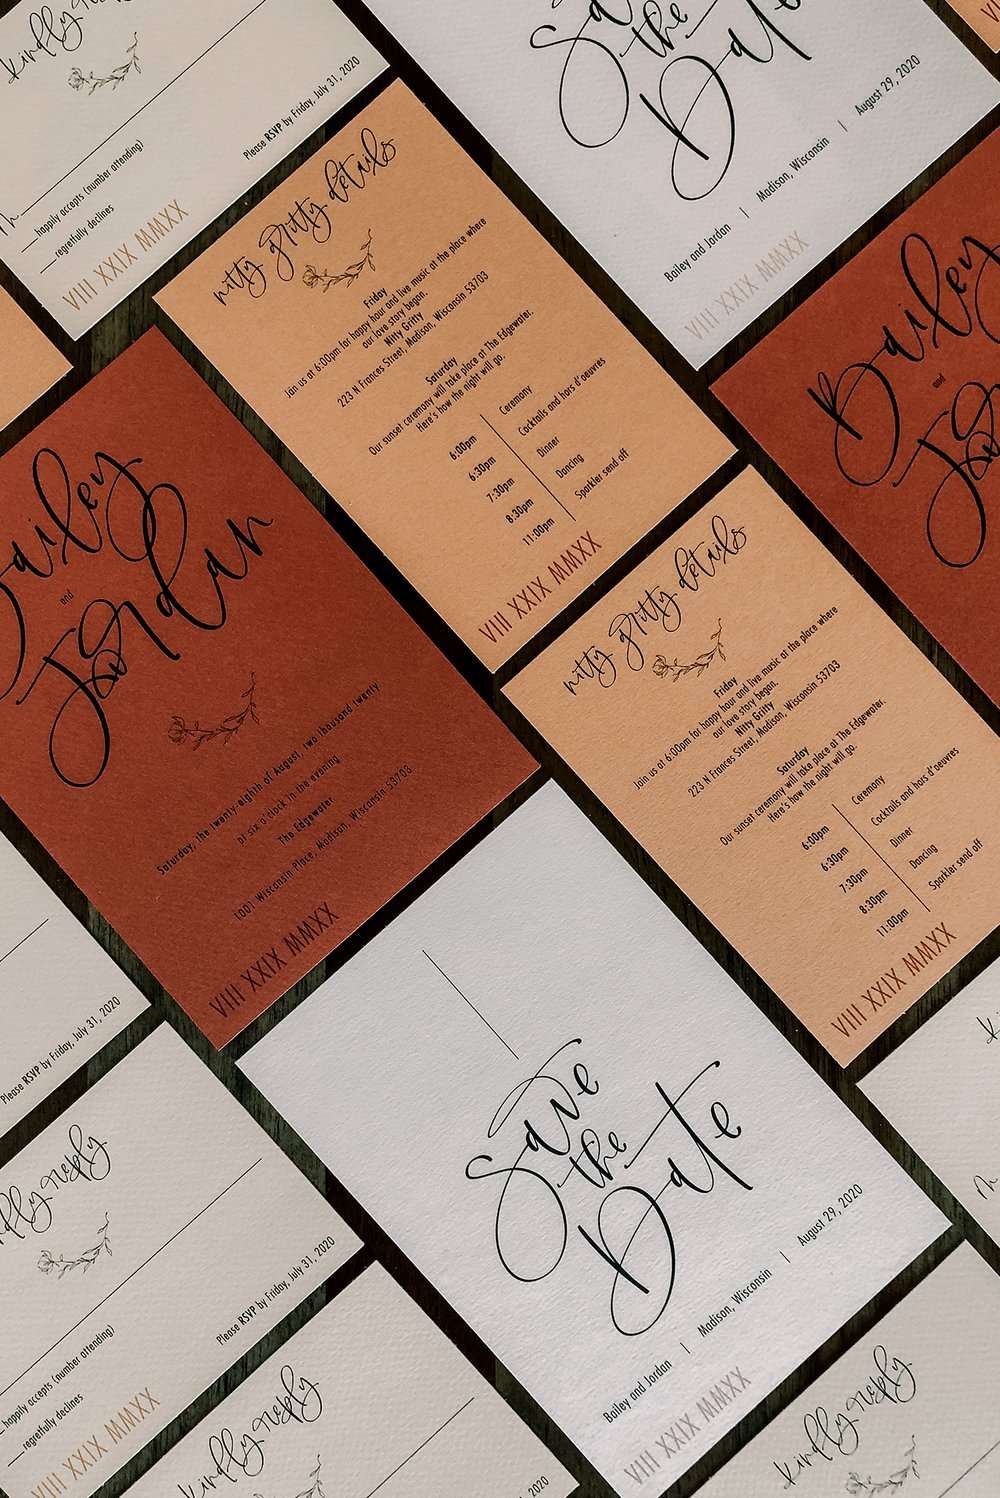 kindly reply
M
happily accepts (number attending)
regretfully declines
Please RSVP by Friday, July 31, 2020
VIII XXIX MMXX
nitty gritty details
Friday
Join us at 6:00pm for happy hour and live music at the place where
our love story began.
Nitty Gritty
223 N Frances Street, Madison, Wisconsin 53703
Saturday
Our sunset ceremony will take place at The Edgewater.
Here's how the night will go.
6:00pm Ceremony
6:30pm Cocktails and hors d'oeuvres
7:30pm Dinner
8:30pm Dancing
11:00pm Sparkler send off
VIII XXIX MMXX
Save
the
Date
Bailey and Jordan | Madison, Wisconsin | August 29, 2020
VIII XXIX MMXX
Bailey
and
Bailey
and
Jordan
Saturday, the twenty-eighth of August, two thousand twenty
at six o'clock in the evening
The Edgewater
1001 Wisconsin Place, Madison, Wisconsin 53703
VIII XXIX MMXX
nitty gritty details
Friday
Join us at 6:00pm for happy hour and live music at the place where
our love story began.
Nitty Gritty
223 N Frances Street, Madison, Wisconsin 53703
Saturday
Our sunset ceremony will take place at The Edgewater.
Here's how the night will go.
6:00pm Ceremony
6:30pm Cocktails and hors d'oeuvres
7:30pm Dinner
8:30pm Dancing
11:00pm Sparkler send off
VIII XXIX MMXX
Please RSVP by Friday, July 31, 2020
Save
the
Date
Bailey and Jordan | Madison, Wisconsin | August 29, 2020
VIII XXIX MMXX
kindly reply
happily accepts (number attending)
regretfully declines
Please RSVP by Friday, July 31, 2020
VIII XXIX MMXX
kindly reply
Please RSVP by Friday, July 31, 2020
M
kindly reply